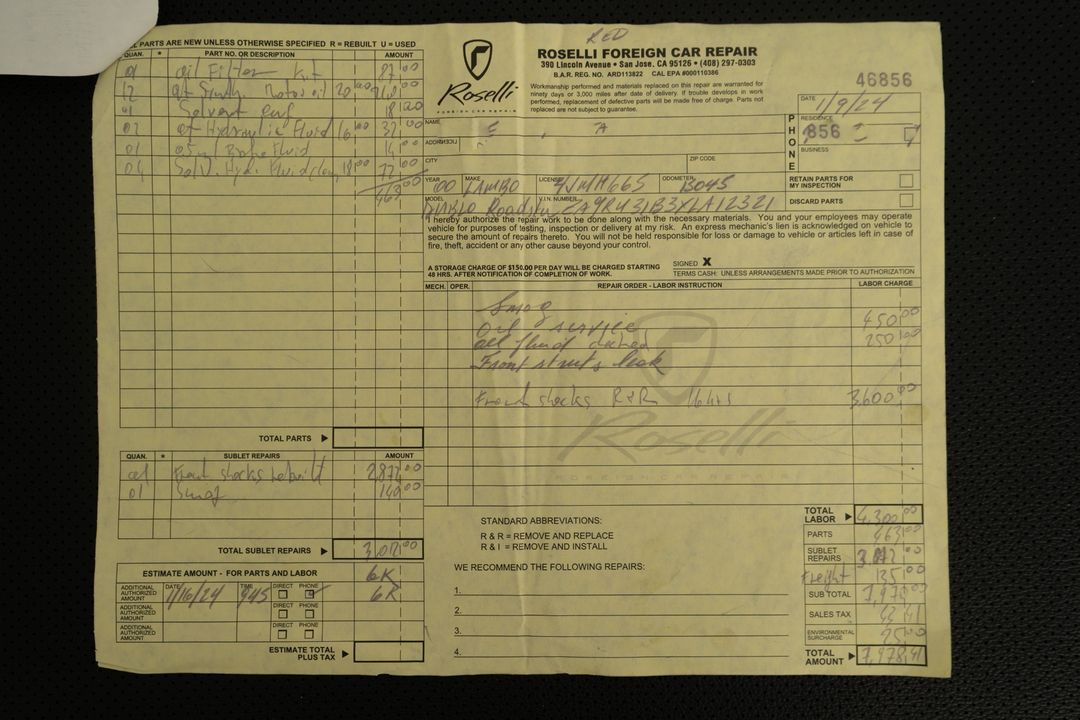 RED
ALL PARTS ARE NEW UNLESS OTHERWISE SPECIFIED R = REBUILT U = USED
QUAN. * PART NO. OR DESCRIPTION AMOUNT
01 Oil Filter Kit 87 00
12 qt Synth. Motor oil 20 00 240 00
01 Solvent 18 00
02 qt Hydraulic Fluid 16 00 32 00
01 Brake Fluid 14 00
04 Hyd. Fluid 18 00 72 00
463 00
TOTAL PARTS
QUAN. * SUBLET REPAIRS AMOUNT
Front shocks rebuilt 2,872 00
01 Smog 140 00
TOTAL SUBLET REPAIRS 3,012 00
ESTIMATE AMOUNT - FOR PARTS AND LABOR 6K
ADDITIONAL AUTHORIZED AMOUNT DATE 1/16/24 TIME 9:45 DIRECT PHONE 6K
ADDITIONAL AUTHORIZED AMOUNT DIRECT PHONE
ADDITIONAL AUTHORIZED AMOUNT DIRECT PHONE
ESTIMATE TOTAL PLUS TAX
Roselli
FOREIGN CAR REPAIR
ROSELLI FOREIGN CAR REPAIR
390 Lincoln Avenue • San Jose, CA 95126 • (408) 297-0303
B.A.R. REG. NO. ARD113822 CAL EPA #000110386
Workmanship performed and materials replaced on this repair are warranted for
ninety days or 3,000 miles after date of delivery. If trouble develops in work
performed, replacement of defective parts will be made free of charge. Parts not
replaced are not subject to guarantee.
46856
DATE 1/9/24
NAME
PHONE
RESIDENCE 856
ADDRESS
BUSINESS
CITY ZIP CODE
YEAR 00 MAKE LAMBO LICENSE 4JMM665 ODOMETER 13045
RETAIN PARTS FOR
MY INSPECTION
MODEL DIABLO Roadster V.I.N. NUMBER
DISCARD PARTS
I hereby authorize the repair work to be done along with the necessary materials. You and your employees may operate
vehicle for purposes of testing, inspection or delivery at my risk. An express mechanic's lien is acknowledged on vehicle to
secure the amount of repairs thereto. You will not be held responsible for loss or damage to vehicle or articles left in case of
fire, theft, accident or any other cause beyond your control.
SIGNED X
A STORAGE CHARGE OF $150.00 PER DAY WILL BE CHARGED STARTING
48 HRS. AFTER NOTIFICATION OF COMPLETION OF WORK.
TERMS CASH: UNLESS ARRANGEMENTS MADE PRIOR TO AUTHORIZATION
MECH. OPER. REPAIR ORDER - LABOR INSTRUCTION LABOR CHARGE
Smog
Oil service 450 00
all fluid checked 250 00
Front struts leak
Front shocks R&R 16 hrs 3,600 00
Roselli
FOREIGN CAR REPAIR
STANDARD ABBREVIATIONS:
R & R = REMOVE AND REPLACE
R & I = REMOVE AND INSTALL
WE RECOMMEND THE FOLLOWING REPAIRS:
1.
2.
3.
4.
TOTAL LABOR 4,300 00
PARTS 463 00
SUBLET REPAIRS 3,012 00
Freight 135 00
SUB TOTAL 7,910 00
SALES TAX 43 41
ENVIRONMENTAL SURCHARGE 25 00
TOTAL AMOUNT 7,978,41